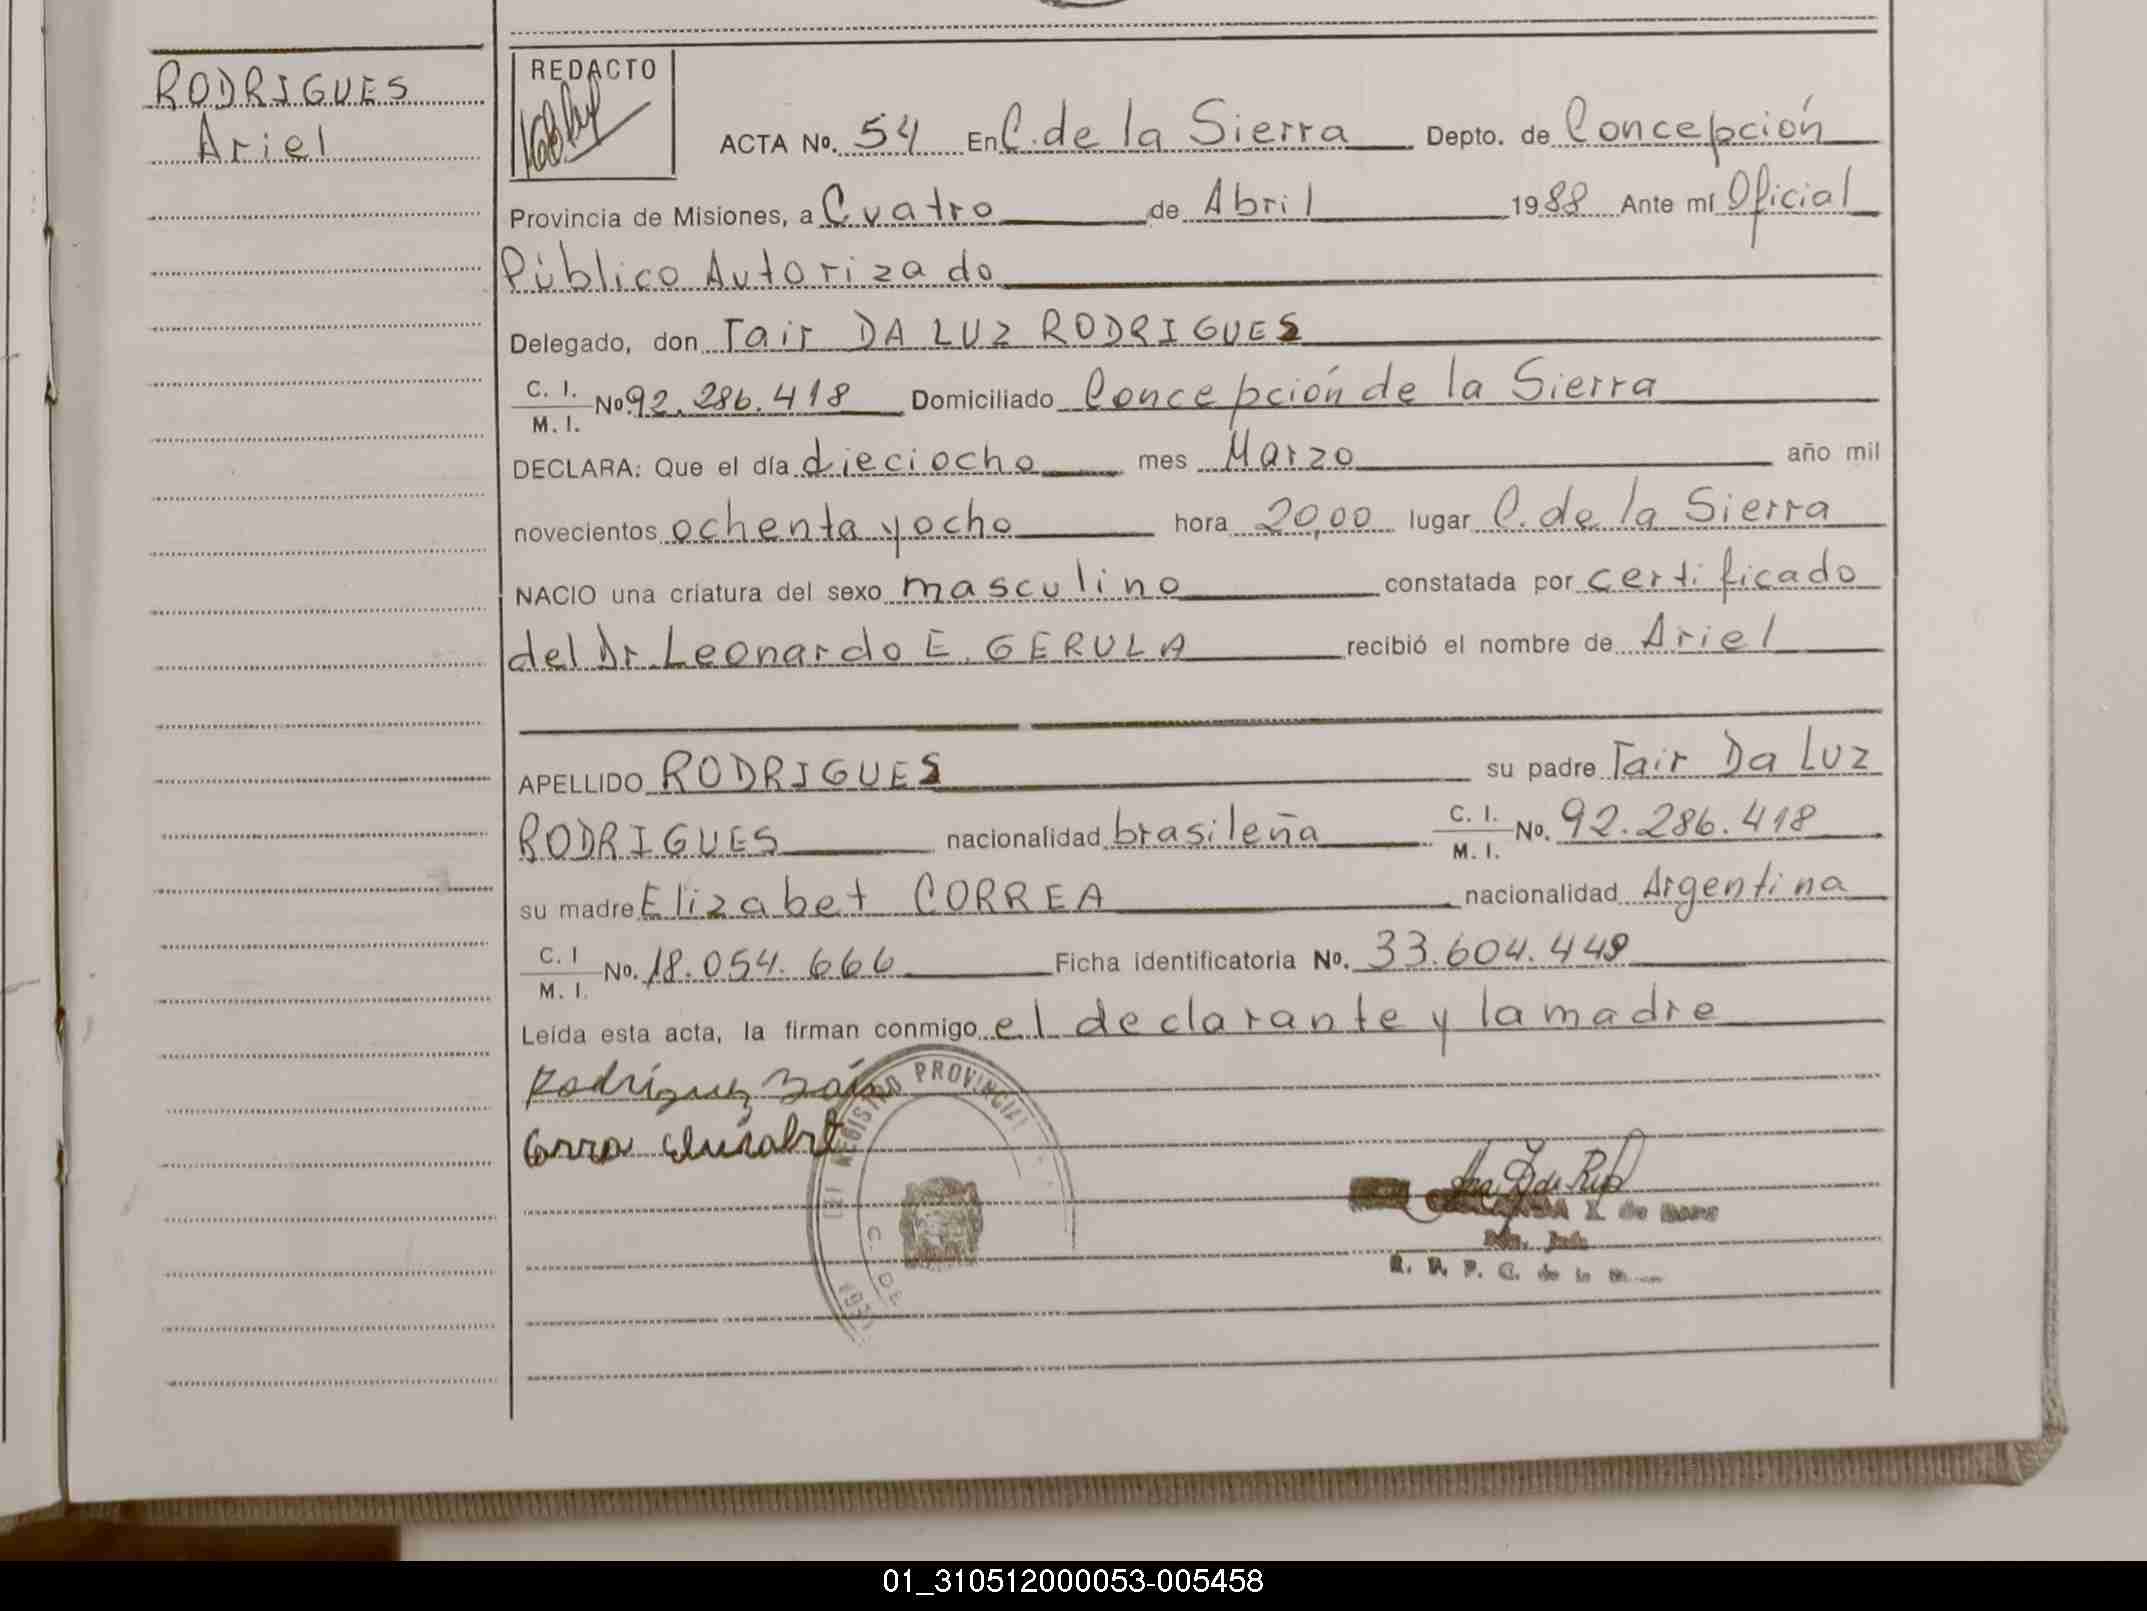 RODRIGUES
Ariel
REDACTO
ACTA No. 54 En C. de la Sierra Depto. de Concepción
Provincia de Misiones, a Cuatro de Abril 1988 Ante mí Oficial
Público Autorizado
Delegado, don Tair DA LUZ RODRIGUES
C. I.
M. I. No 92.286.418 Domiciliado Concepción de la Sierra
DECLARA: Que el día dieciocho mes Marzo año mil
novecientos ochenta y ocho hora 20,00 lugar C. de la Sierra
NACIO una criatura del sexo masculino constatada por certificado
del Dr Leonardo E. GERULA recibió el nombre de Ariel
APELLIDO RODRIGUES su padre Tair Da Luz
RODRIGUES nacionalidad brasileña C. I. M. I. No. 92.286.418
su madre Elizabet CORREA nacionalidad Argentina
C. I M. I. No. 18.054.666 Ficha identificatoria No. 33.604.449
Leída esta acta, la firman conmigo el declarante y la madre
REGISTRO PROVINCIAL
C. DE
R. P. C. de la
01_310512000053-005458